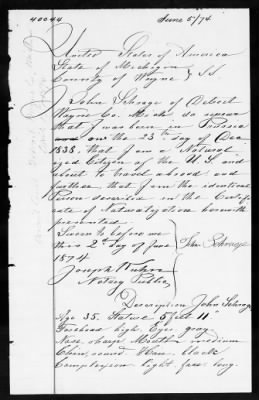 40044 June 5/74
United States of America
State of Michigan
County of Wayne } SS
I John Schrage of Detroit
Wayne Co. Mich. do swear
that I was born in Prussia
on the 25th day of Dec
1838, that I am a Natural
ized Citizen of the U.S. and
about to travel abroad and
further that I am the identical
Person described in the Certifi
cate of Naturalization herewith
presented.
Sworn to before me
this 2d day of June
1874
John Schrage
Joseph Kuhn
Notary Public
Description John Schrage
Age 35. Stature 5 feet 11"
Forehead high. Eyes gray
Nose large Mouth medium
Chin, round Hair black
Complexion light face long.